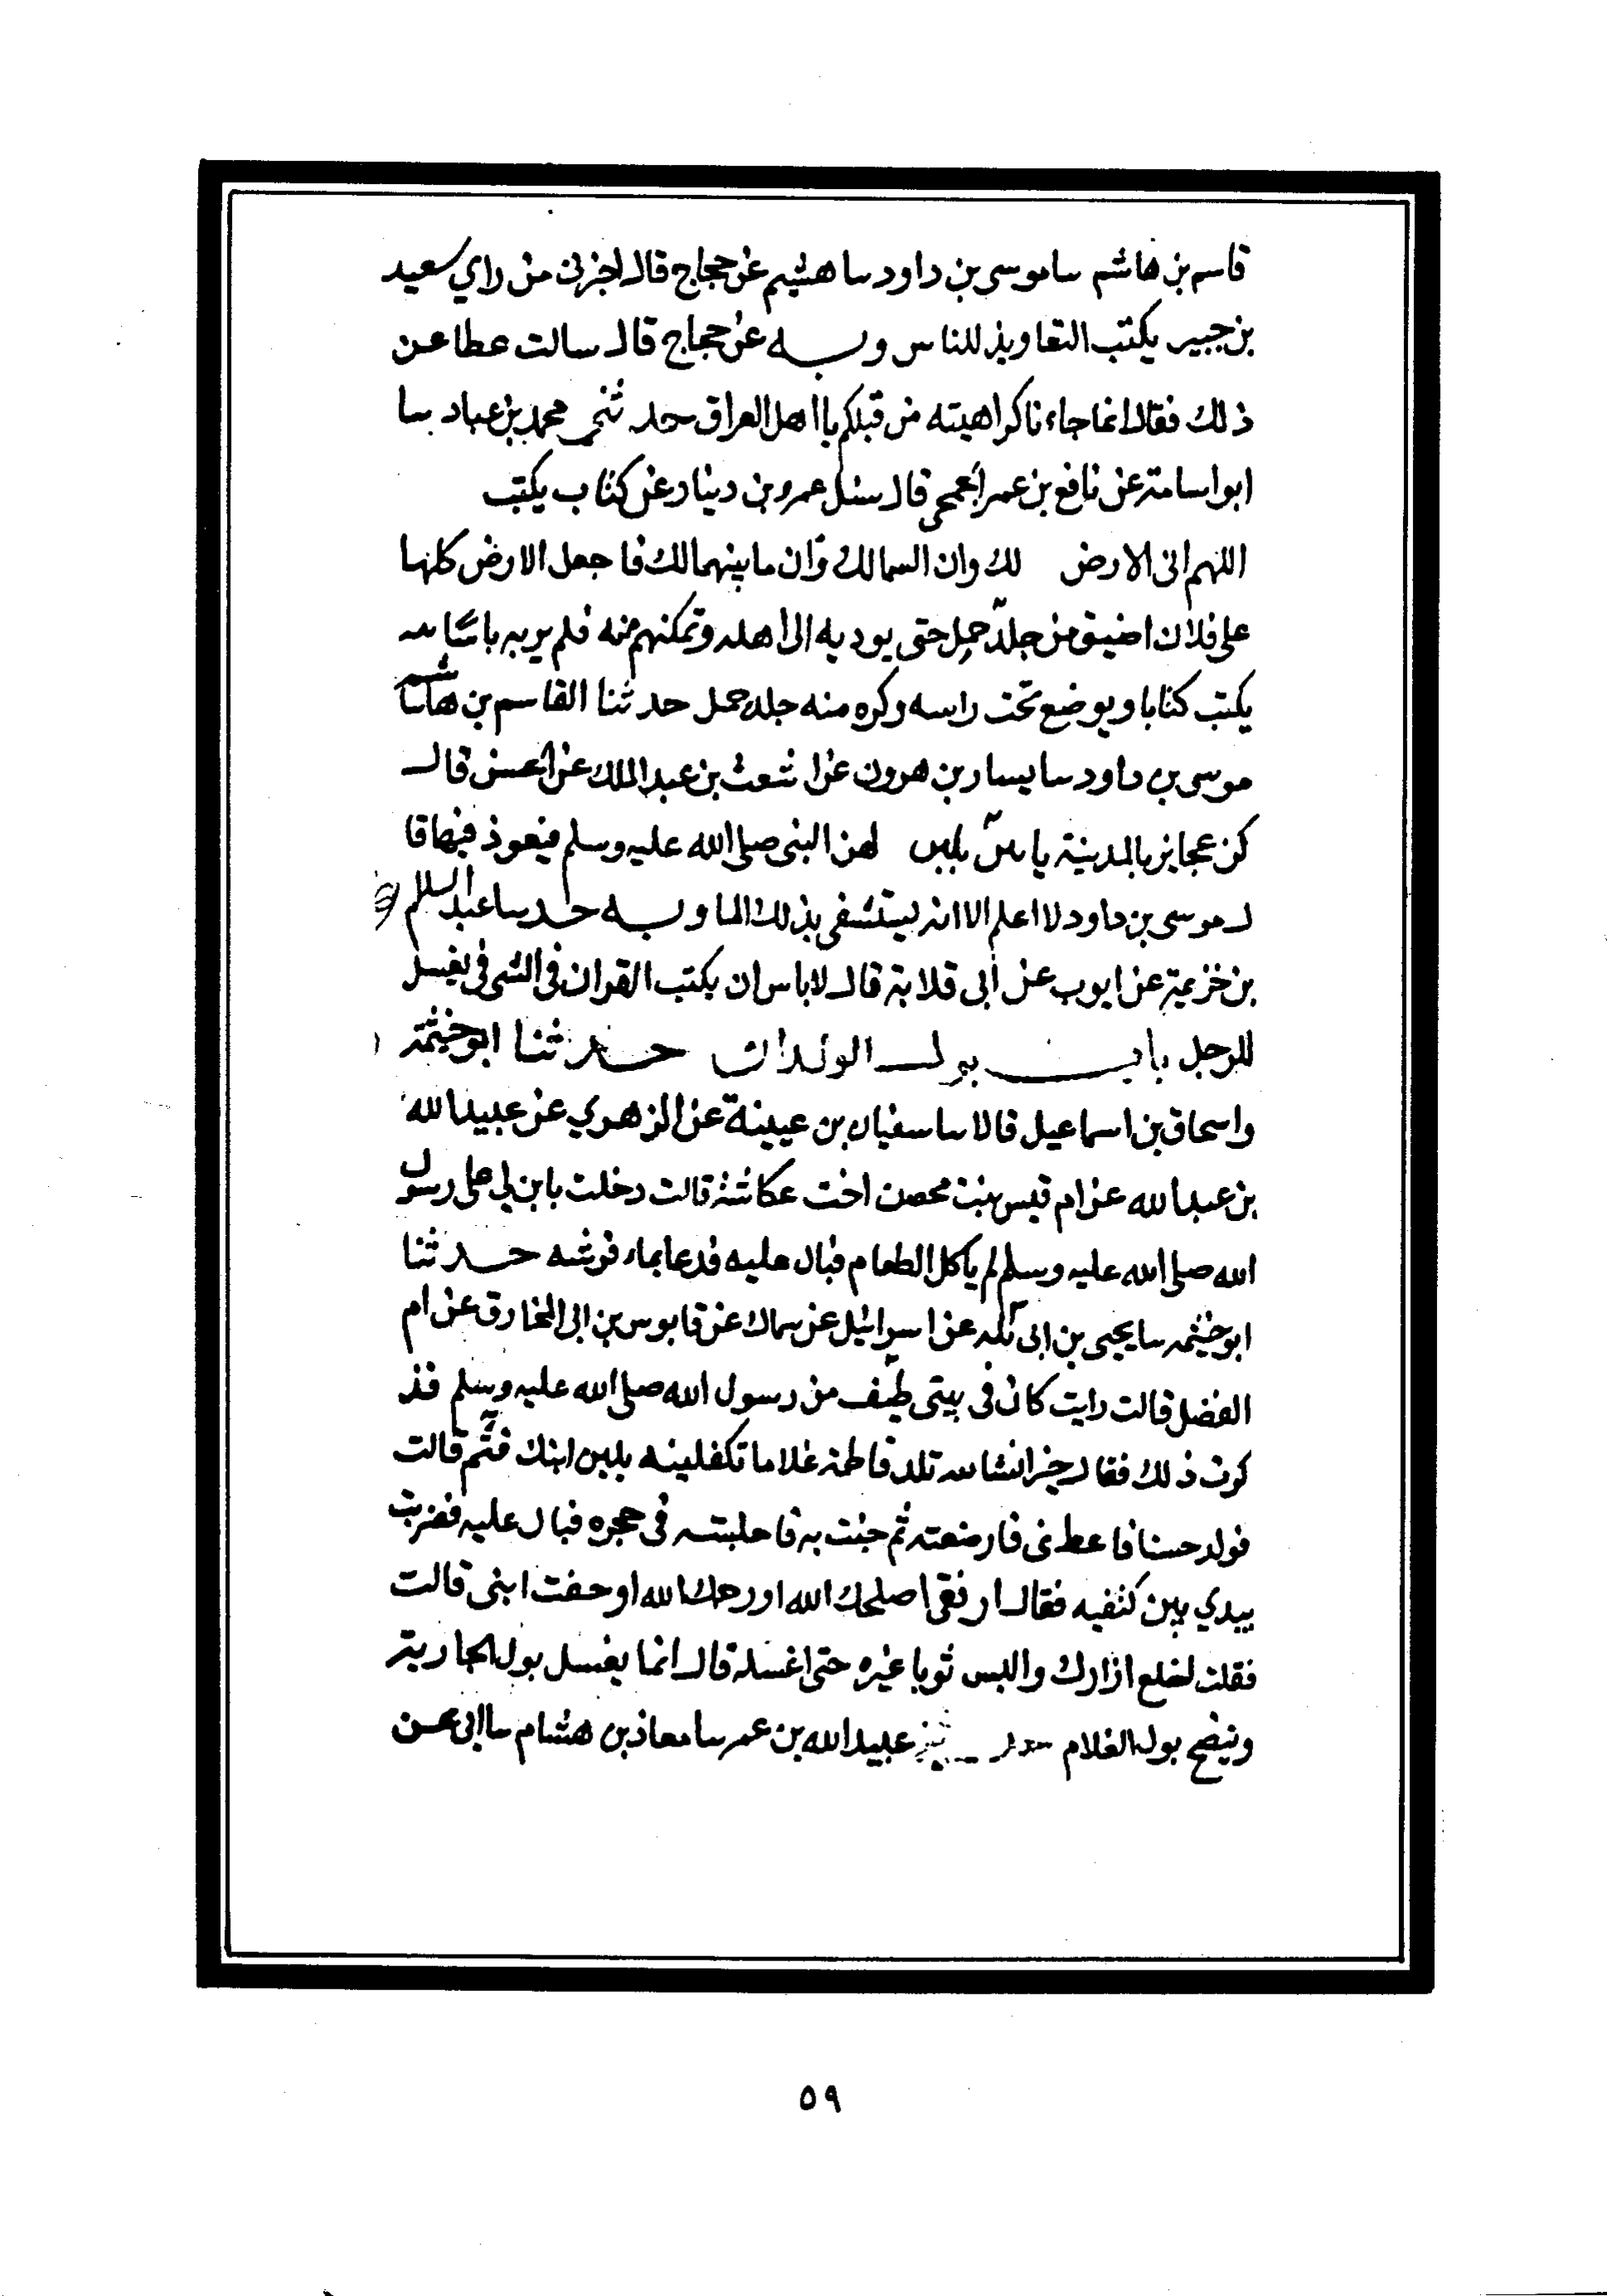 قاسم بن هاشم سا موسى بن داود سا هشيم عن حجاج قال اخبرني من راي سعيد
بن جبير يكتب التعاويذ للناس وبه عن حجاج قال سالت عطا عن
ذلك فقال انما جاءنا كراهيته من قبلكم يا اهل العراق حدثني محمد بن عباد سا
ابو اسامة عن نافع بن عمر الجمحي قال سئل عمرو بن دينار عن كتاب يكتب
اللهم ان الارض لك وان السما لك وان ما بينهما لك فاجعل الارض كلها
على فلان اضيق من جلد حمل حتى يوديه الى اهله وتمكنهم منه فلم ير به باسا
يكتب كتابا ويوضع تحت راسه وكره منه جلد حمل حدثنا القاسم بن هاشم سا
موسى بن داود سا يسار بن هرون عن اشعث بن عبد الملك عن الحسن قال
كن عجايز بالمدينة لهن النبي صلى الله عليه وسلم فيعوذ فيها قا
ل موسى بن داود لا اعلم الا انه يستشفي بذلك الما وبه حد سا عبد السلم
بن خزيمة عن ايوب عن ابي قلابة قال لا باس ان يكتب القران في الشي في يغسل
للرجل باب بول الولدان حدثنا ابو خيثمة
واسحاق بن اسماعيل قالا سا سفيان بن عيينة عن الزهري عن عبيد الله
بن عبد الله عن ام قيس بنت محصن اخت عكاشة قالت دخلت بابن لي على رسول
الله صلى الله عليه وسلم لم ياكل الطعام فبال عليه فدعا بماء فرشه حدثنا
ابو خيثمه سا يحيى بن ابي عن اسرائيل عن سماك عن قابوس بن ابي المخارق عن ام
الفضل قالت رايت كان في بيتي طيف من رسول الله صلى الله عليه وسلم فذ
كرت ذلك فقال خير انشا الله تلد فاطمة غلاما تكفلينه بلبن ابنك قثم قالت
فولد حسنا فاعطني فارضعته ثم جئت به فاجلسته في حجره فبال عليه فضربت
بيدي بين كتفيه فقال ارفقي اصلحك الله او رحمك الله اوجعت ابني قالت
فقلت اخلع ازارك والبس ثوبا غيره حتى اغسله قال انما يغسل بول الجارية
وينضح بول الغلام عبيد الله بن عمر سا معاذ بن هشام سا ابي عن
٥٩